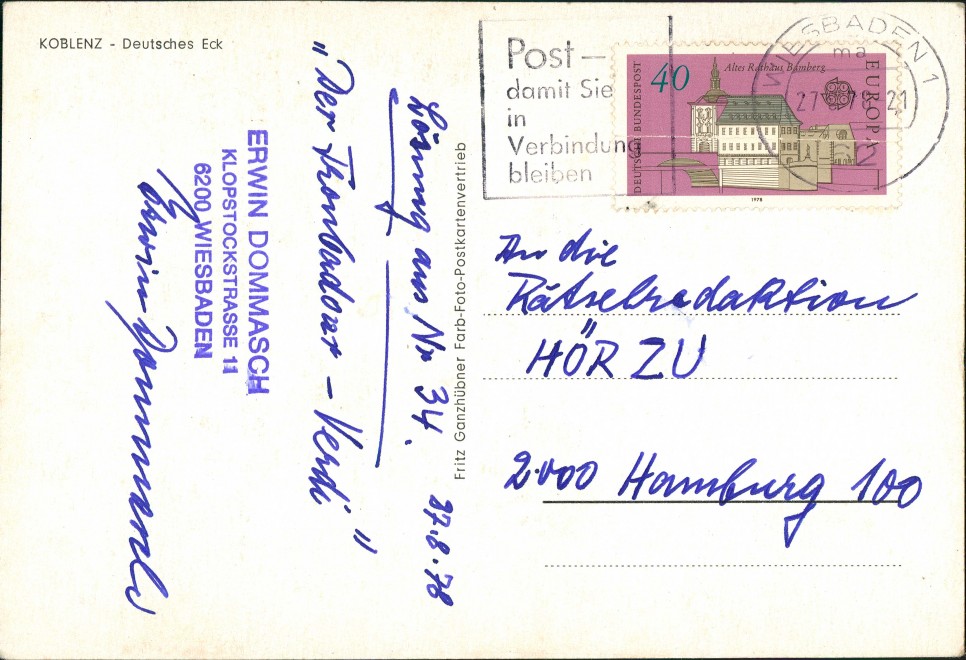 KOBLENZ - Deutsches Eck
Lösung aus Nr 34.
27.8.78
"Der Troubadour - Verdi"
ERWIN DOMMASCH
KLOPSTOCKSTRASSE 11
6200 WIESBADEN
Erwin Dommasch
Fritz Ganzhübner Farb-Foto-Postkartenvertrieb
Post –
damit Sie
in
Verbindung
bleiben
DEUTSCHE BUNDESPOST
40
Altes Rathaus Bamberg
EUROPA
1978
WIESBADEN 1
ma
27 78 21
An die
Rätselredaktion
HÖR ZU
2000 Hamburg 100